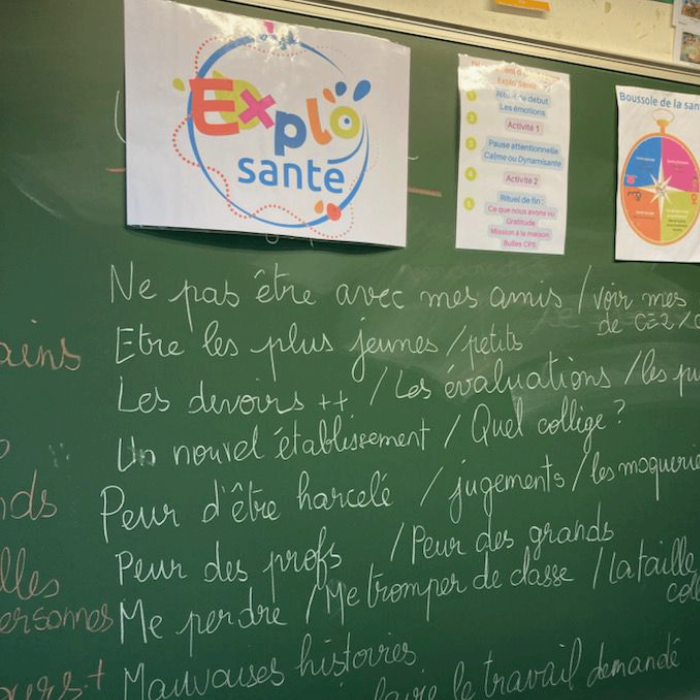 Explo
santé
Explo Santé
Rituel de début
Les émotions
Activité 1
Pause attentionnelle
Calme ou Dynamisante
Activité 2
Rituel de fin :
Ce que nous avons vu
Gratitude
Mission à la maison
Bulles CPS
Boussole de la san
Ne pas être avec mes amis / voir mes
de CE2
ains Etre les plus jeunes / petits
Les devoirs ++ / Les évaluations / les pu
Un nouvel établissement / Quel collège ?
nds Peur d'être harcelé / jugements / les moqueries
Peur des profs / Peur des grands
lles
ersonnes Me perdre / Me tromper de classe / la taille
Mauvaises histoires
faire le travail demandé